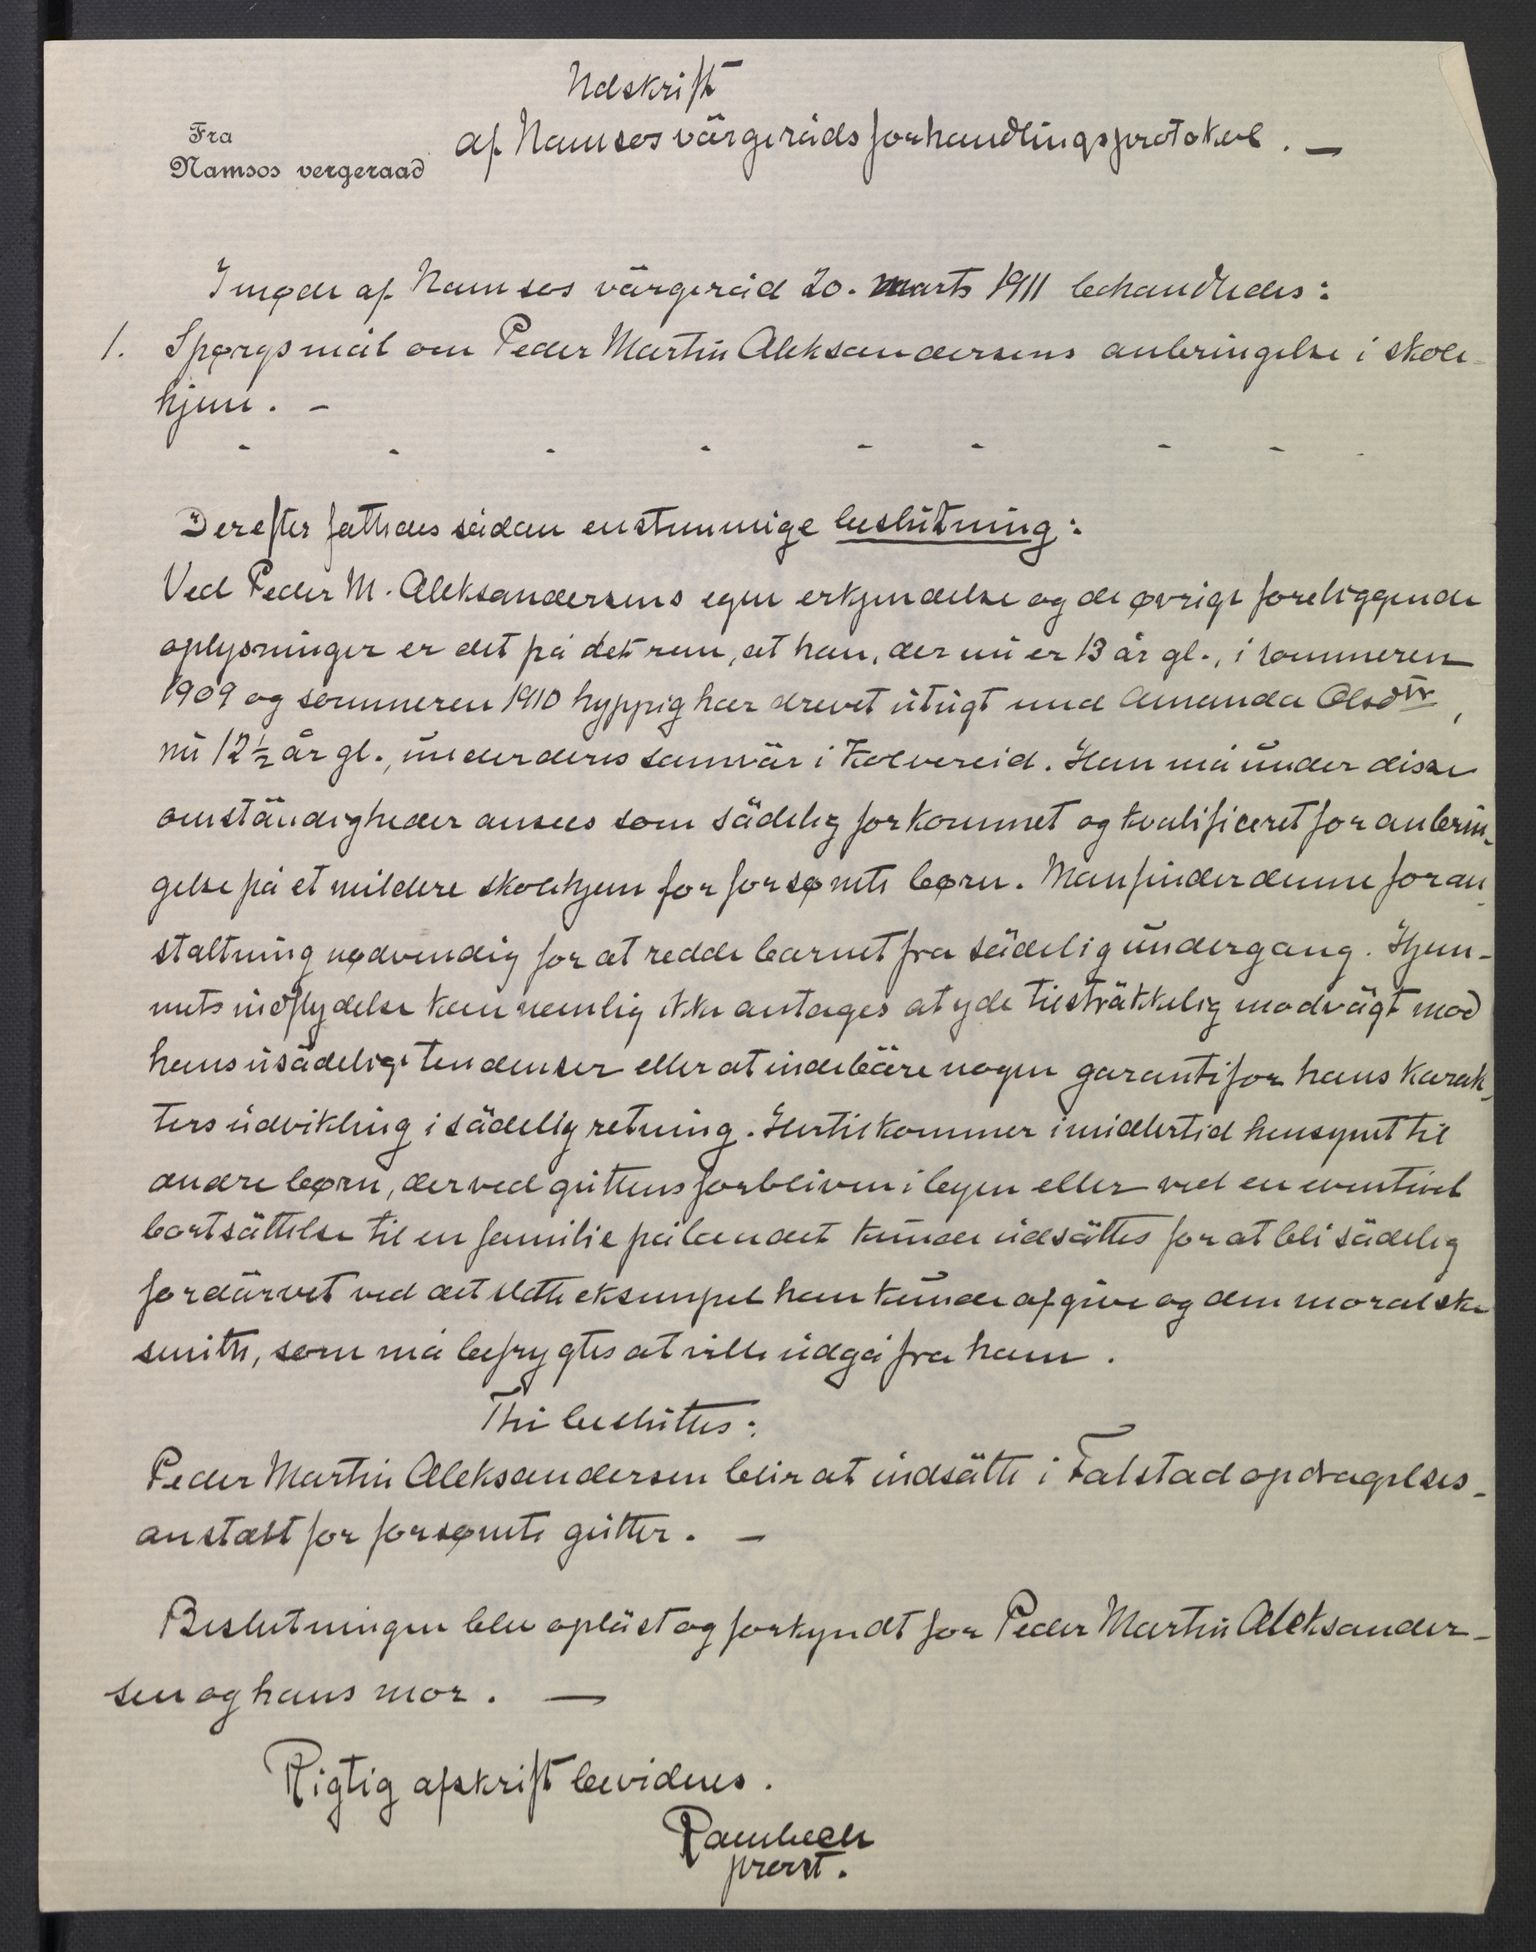 Udskrift
Fra
Namsos vergeraad
af Namsos värgeråds forhandlingsprotokol. —
I møde af Namsos värgeråd 20. marts 1911 behandledes:
1. Spørgsmål om Peder Martin Aleksandersens anbringelse i skole-
hjem. —
- - - - - - - -
Derefter fattedes sådan enstemmige beslutning:
Ved Peder M. Aleksandersens egen erkjendelse og de øvrige foreliggende
oplysninger er det på det rene, at han, der nu er 13 år gl., i sommeren
1909 og sommeren 1910 hyppig har drevet utugt med Amanda Olsdtr,
nu 12 ½ år gl., under deres samvär i Kolvereid. Han må under disse
omständigheder ansees som sädelig forkommet og kvalificeret for anbrin-
gelse på et mildere skolehjem for forsømte børn. Man finder denne foran-
staltning nødvendig for at redde barnet fra sädelig undergang. Hjem-
mets indflydelse kan nemlig ikke antages at yde tilsträkkelig modvägt mod
hans usädelige tendenser eller at indebäre nogen garanti for hans karak-
ters udvikling i sädelig retning. Hertil kommer imidlertid hensynet til
andre børn, der ved guttens forbliven i byen eller ved en eventuel
bortsättelse til en familie på landet kunde udsättes for at bli sädelig
fordärvet ved det slette eksempel han kunde afgive og den moralske
smitte, som må befrygtes at ville udgå fra ham.
Thi besluttes:
Peder Martin Aleksandersen blir at indsätte i Falstad opdragelses-
anstalt for forsømte gutter. —
Beslutningen blev opläst og forkyndt for Peder Martin Aleksander-
sen og hans mor. —
Rigtig afskrift bevidnes.
Rambech
provst.